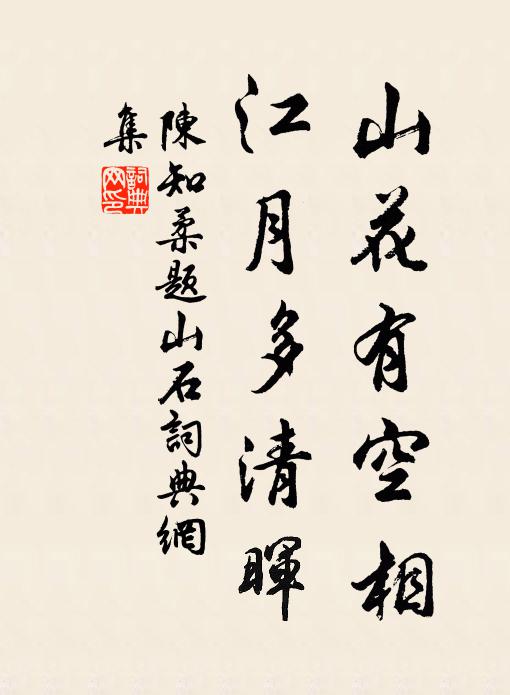 山花有空相
江月多清暉
陳知柔題山石詞典網
集
詞典
网印